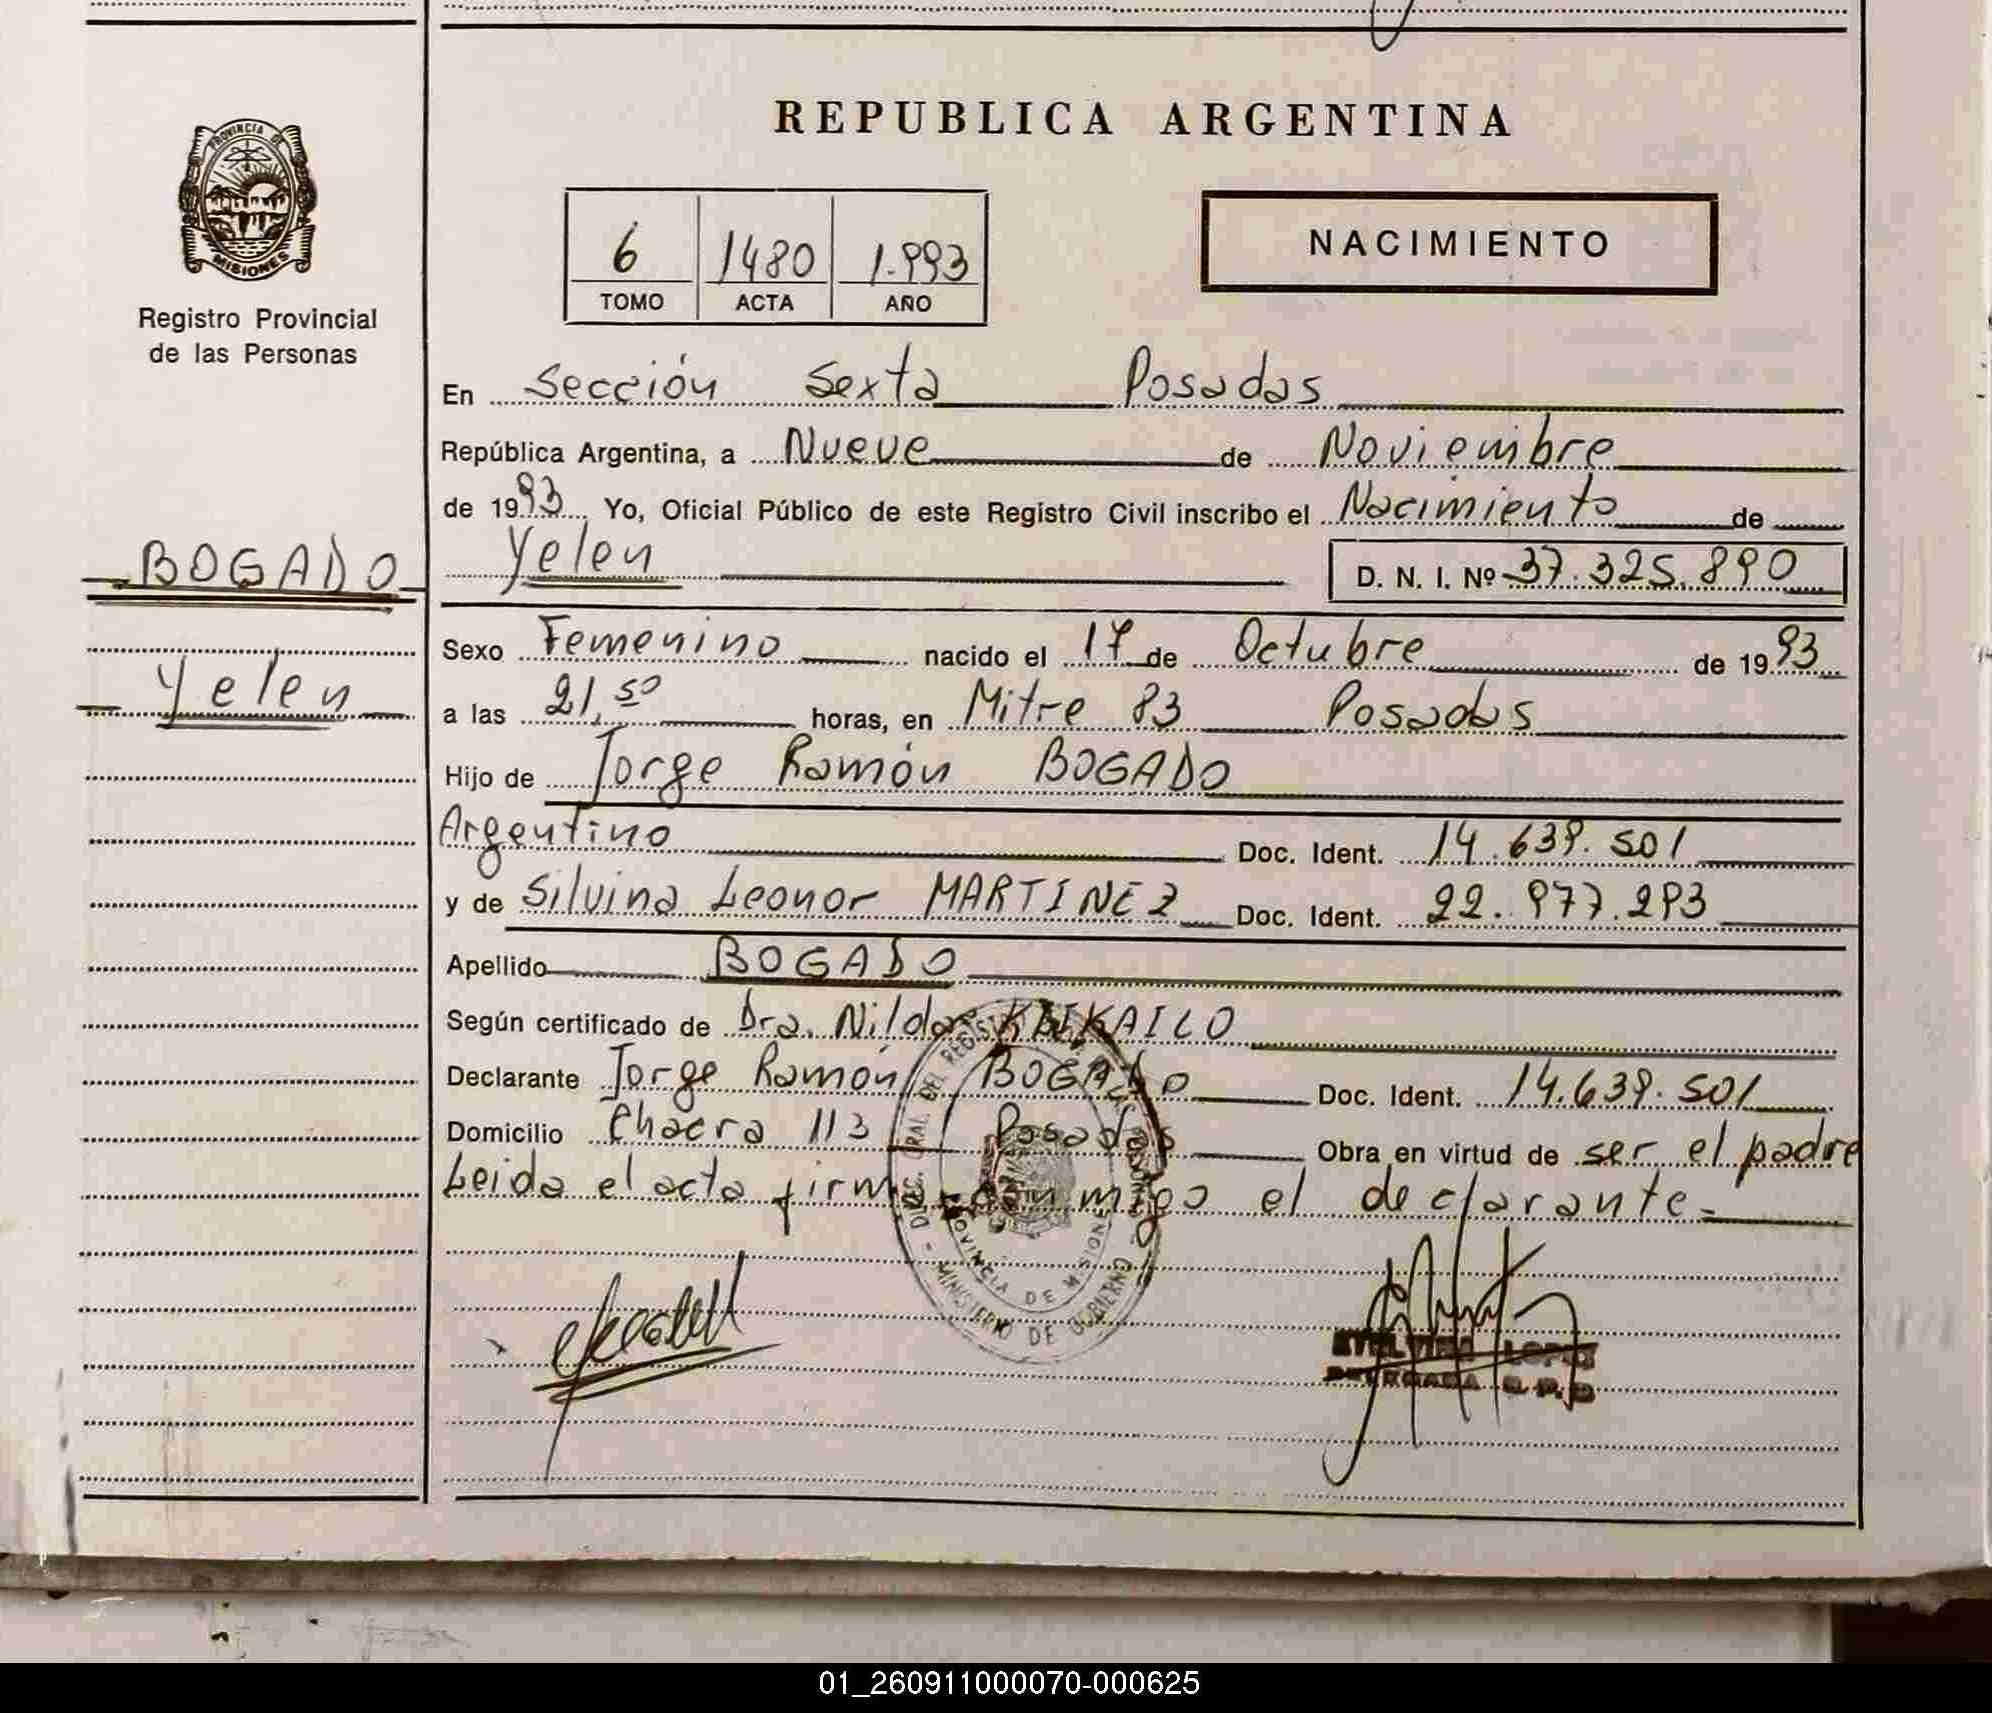 REPUBLICA ARGENTINA
PROVINCIA DE
MISIONES
Registro Provincial
de las Personas
6 1480 1.993
TOMO ACTA AÑO
NACIMIENTO
En Sección Sexta Posadas
República Argentina, a Nueve de Noviembre
de 1993 Yo, Oficial Público de este Registro Civil inscribo el Nacimiento de
BOGADO
Yelen
Yelen D. N. I. Nº 37.325.890
Sexo Femenino nacido el 17 de Octubre de 1993
a las 21,50 horas, en Mitre 83 Posadas
Hijo de Jorge Ramón BOGADO
Argentino Doc. Ident. 14.639.501
y de Silvina Leonor MARTINEZ Doc. Ident. 22.977.293
Apellido BOGADO
Según certificado de Dra. Nilda
Declarante Jorge Ramón BOGADO Doc. Ident. 14.639.501
Domicilio Chacra 113 Posadas Obra en virtud de ser el padre
Leida el acta firma conmigo el declarante.
PROVINCIA DE MISIONES
MINISTERIO DE GOBIERNO
01_260911000070-000625